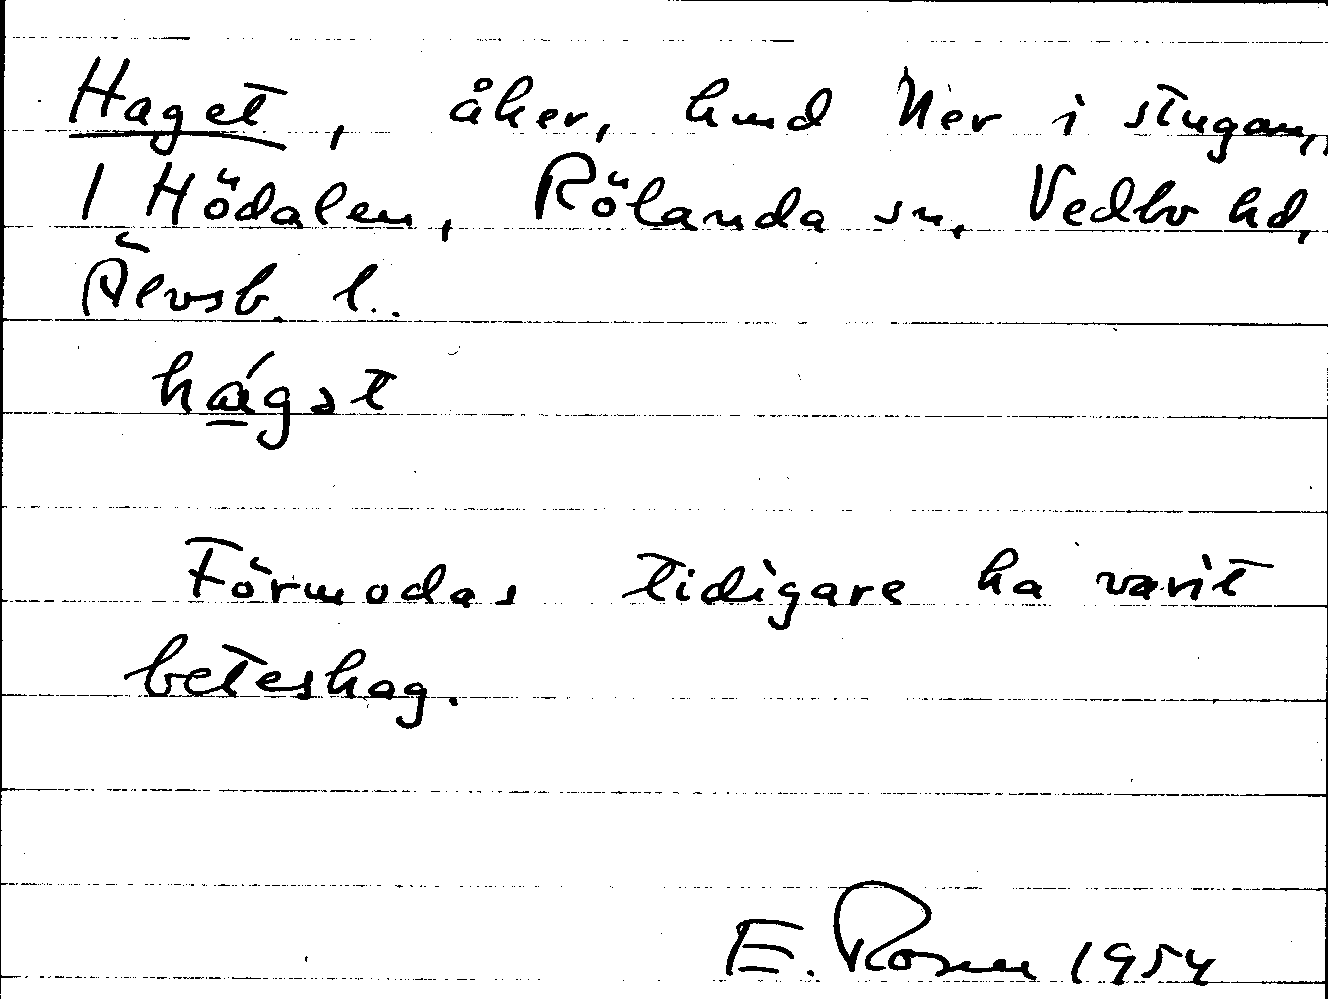 Haget, åker, hmd Ner i stugan,
1 Hödalen, Rölanda sn, Vedbo hd,
Älvsb. l.
hágət
Förmodas tidigare ha varit
beteshag.
E. Rosen 1954